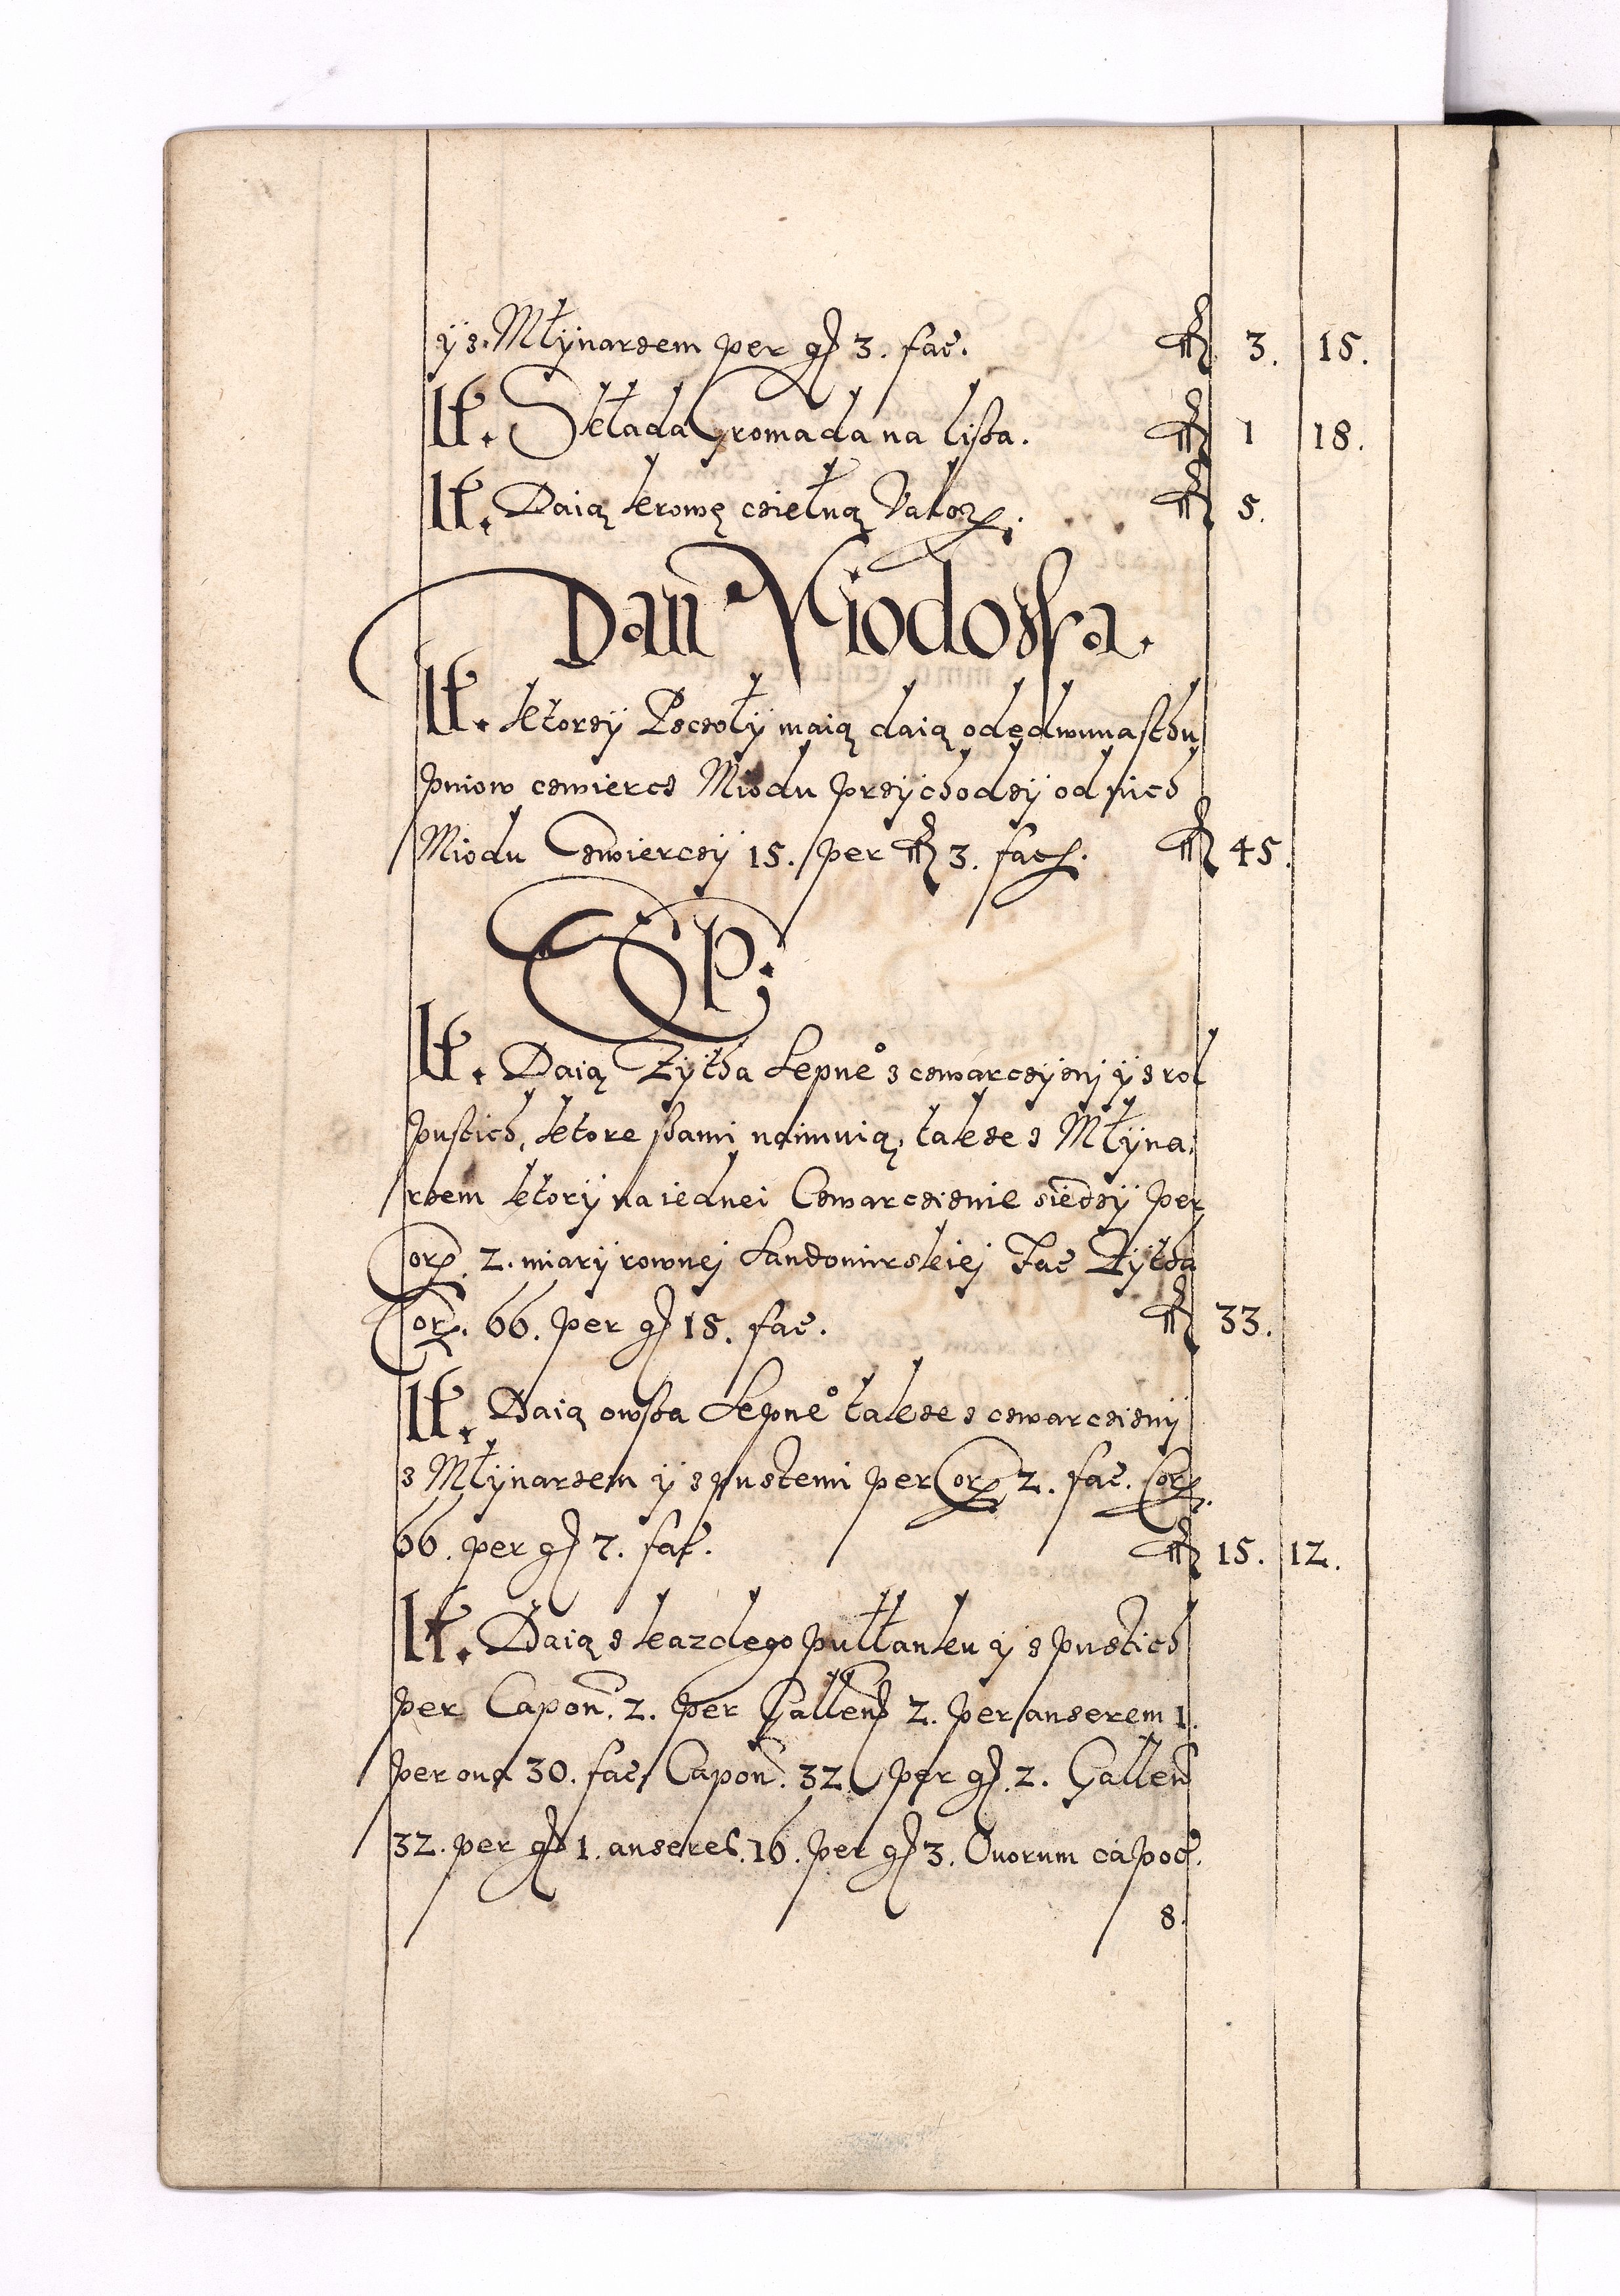 ÿ z Młÿnarzem per gr 3. fac. fl 3. 15.
It. Składa Gromada na lisba. fl 1 18.
It. Daią krowę czielną Valor. fl 5.
Dan Miodowa.
It. ktorzÿ Pczołÿ maią daią od dwunasthu
pniow czwiercz Miodu przÿchodzÿ od nich
Miodu Czwierczÿ 15. per fl 3. fac. fl 45.
SEP;
It. Daią Zÿtha Sepne° z czwarczÿznj ÿ z rol
pustich, ktore sami naimuią, takze z Młÿna,
rzem ktorÿ na iednei Czwarcziznie siedzÿ per
Cor. 2. miarÿ rownej Sandomirskiej Fac Zÿtha
Cor. 66. per gr 15. fac. fl 33.
It. Daią owsa Sepne° takze z czwarcziznÿ
z Młÿnarzem ÿ z pustemi per Cor 2. fac. Cor.
66. per gr 7. fac. fl 15. 12.
It. Daią z kazdego pułłanku ÿ z pustich
per Capon. 2. per Gallen 2. per anserem 1.
per oua 30. fac Capon. 32 per gr. 2. Gallen
32. per gr 1. anseres. 16. per gr 3. Ouorum capoc.
8.